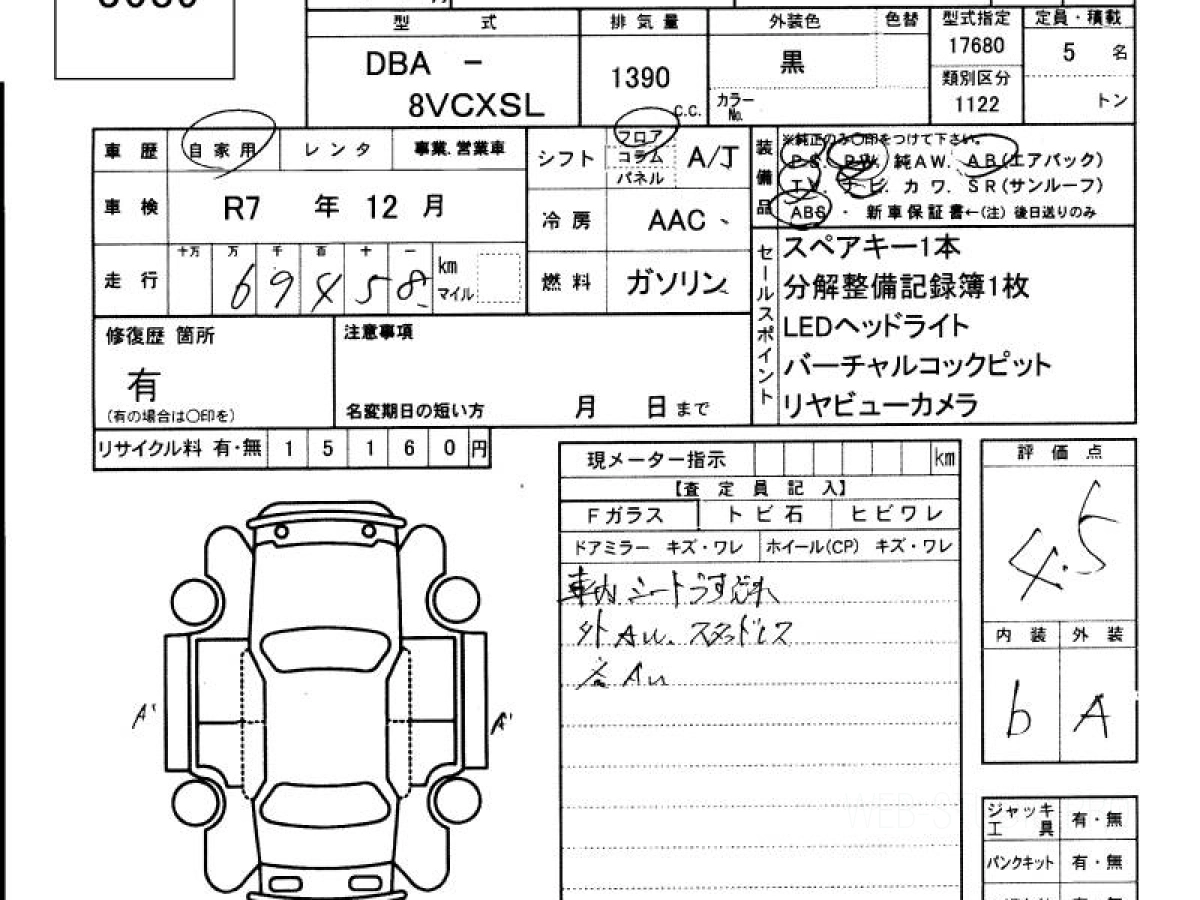 型式 排気量 外装色 色替 型式指定 定員・積載
DBA － 1390 黒 17680 5 名
8VCXSL C.C. カラーNo. 類別区分 1122 トン
車歴 自家用 レンタ 事業.営業車
シフト フロア コラム パネル A/T
装備品 ※純正のみ〇印をつけて下さい。
PS. PW. 純AW. AB(エアバック)
TV. ナビ. カワ. SR(サンルーフ)
ABS ・ 新車保証書←(注) 後日送りのみ
車検 R7 年 12 月
冷房 AAC
走行 十万 万 千 百 十 一 km マイル
69458
燃料 ガソリン
セールスポイント
スペアキー1本
分解整備記録簿1枚
LEDヘッドライト
バーチャルコックピット
リヤビューカメラ
修復歴 箇所
有
(有の場合は〇印を)
注意事項
名変期日の短い方 月 日まで
リサイクル料 有・無 15160円
現メーター指示 km
【査定員記入】
Fガラス トビ石 ヒビワレ
ドアミラー キズ・ワレ ホイール(CP) キズ・ワレ
車内シートうすよごれ
外AU. スタッドレス
AU
A' A'
評価点
4.5
内装 外装
b A
ジャッキ工具 有・無
パンクキット 有・無